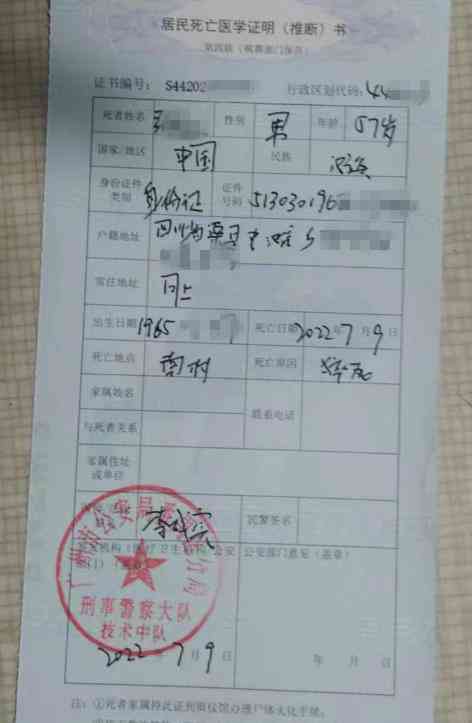 居民死亡医学证明（推断）书
第四联（殡葬部门保存）
证书编号： S44202 行政区划代码：44
死者姓名 性别 男 年龄 57岁
国家/地区 中国 民族 汉族
身份证件类别 身份证 证件号码 513030196
户籍地址 四川省渠县
常住地址 同上
出生日期 1965 死亡日期 2022年7月9日
死亡地点 南村 死亡原因 猝死
家属姓名 联系电话
与死者关系
家属住址或单位
民警签名
公安部门意见（盖章）
刑事警察大队
技术中队
2022 7 9 年 月 日
注：①死者家属持此证到殡仪馆办理尸体火化手续。